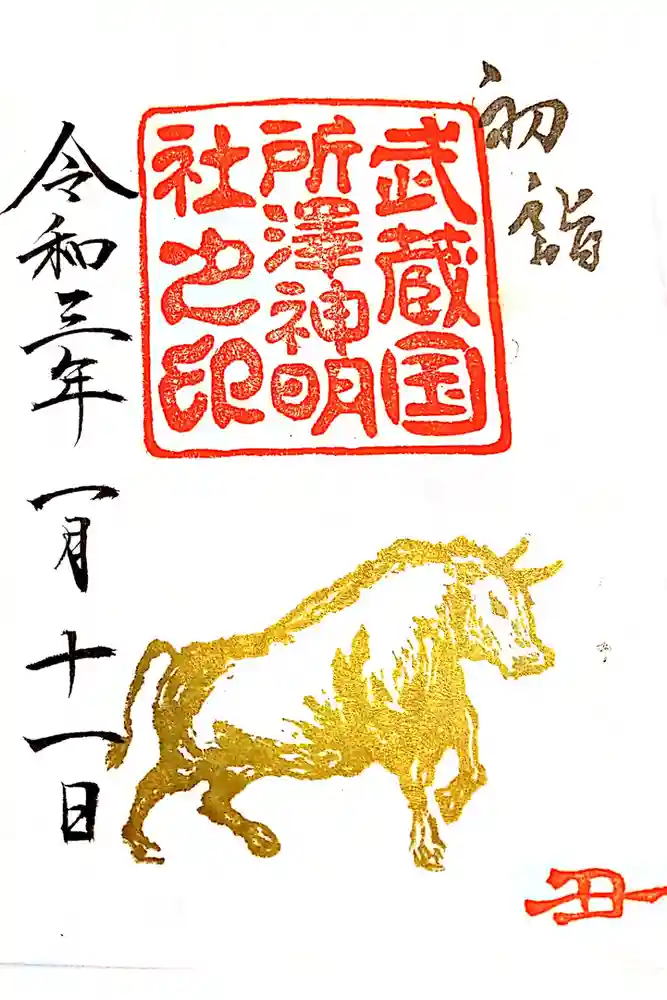 初詣
武蔵国
所澤神明
社之印
令和三年一月十一日
丑